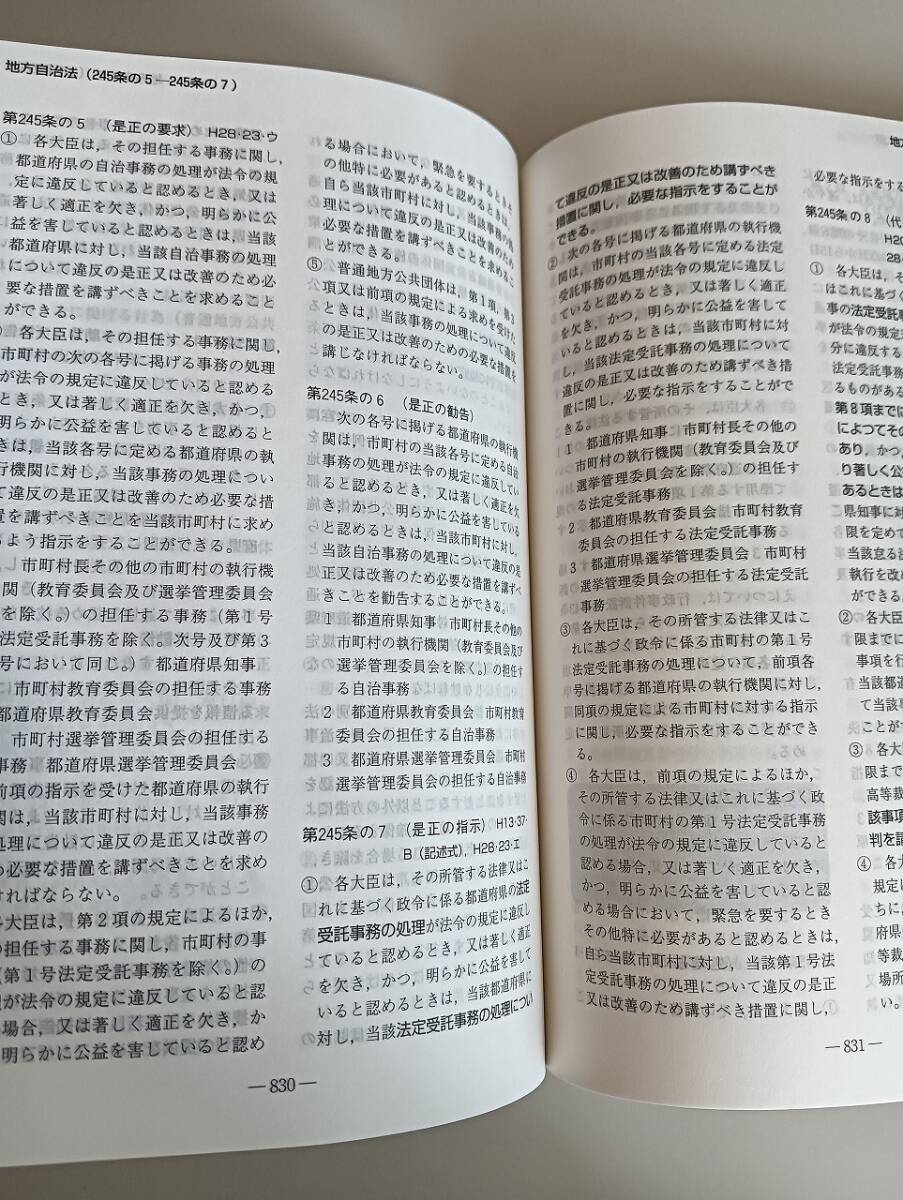 地方自治法（245条の5―245条の7）
第245条の5　（是正の要求）　H28・23・ウ
①　各大臣は，その担任する事務に関し，
都道府県の自治事務の処理が法令の規
定に違反していると認めるとき，又は
著しく適正を欠き，かつ，明らかに公
益を害していると認めるときは，当該
都道府県に対し，当該自治事務の処理
について違反の是正又は改善のため必
要な措置を講ずべきことを求めること
ができる。
各大臣は，その担任する事務に関し，
市町村の次の各号に掲げる事務の処理
が法令の規定に違反していると認める
とき，又は著しく適正を欠き，かつ，
明らかに公益を害していると認めると
きは，当該各号に定める都道府県の執
行機関に対し，当該事務の処理につい
て違反の是正又は改善のため必要な措
置を講ずべきことを当該市町村に求め
るよう指示をすることができる。
市町村長その他の市町村の執行機
関（教育委員会及び選挙管理委員会
を除く。）の担任する事務（第1号
法定受託事務を除く。次号及び第3
号において同じ。）　都道府県知事
市町村教育委員会の担任する事務
都道府県教育委員会
市町村選挙管理委員会の担任する
事務　都道府県選挙管理委員会
前項の指示を受けた都道府県の執行
関は，当該市町村に対し，当該事務
処理について違反の是正又は改善の
め必要な措置を講ずべきことを求め
ければならない。
各大臣は，第2項の規定によるほか，
の担任する事務に関し，市町村の事
（第1号法定受託事務を除く。）の
理が法令の規定に違反していると認
場合，又は著しく適正を欠き，か
明らかに公益を害していると認め
る場合において，緊急を要するとき
の他特に必要があると認めるときは，
自ら当該市町村に対し，当該事務の処
理について違反の是正又は改善のため
必要な措置を講ずべきことを求めるこ
とができる。
⑤　普通地方公共団体は，第1項，第3
項又は前項の規定による求めを受けた
ときは，当該事務の処理について違反
の是正又は改善のための必要な措置を
講じなければならない。
第245条の6　（是正の勧告）
次の各号に掲げる都道府県の執行機
関は，市町村の当該各号に定める自治
事務の処理が法令の規定に違反してい
ると認めるとき，又は著しく適正を欠
き，かつ，明らかに公益を害している
と認めるときは，当該市町村に対し，
当該自治事務の処理について違反の是
正又は改善のため必要な措置を講ずべ
きことを勧告することができる。
1　都道府県知事　市町村長その他の
市町村の執行機関（教育委員会及び
選挙管理委員会を除く。）の担任す
る自治事務
2　都道府県教育委員会　市町村教育
委員会の担任する自治事務
3　都道府県選挙管理委員会　市町村
選挙管理委員会の担任する自治事務
第245条の7　（是正の指示）　H13・37・
B（記述式），H28・23・エ
①　各大臣は，その所管する法律又はこ
れに基づく政令に係る都道府県の法定
受託事務の処理が法令の規定に違反し
ていると認めるとき，又は著しく適正
を欠き，かつ，明らかに公益を害して
いると認めるときは，当該都道府県に
対し，当該法定受託事務の処理につい
―830―
て違反の是正又は改善のため講ずべき
措置に関し，必要な指示をすることが
できる。
②　次の各号に掲げる都道府県の執行機
関は，市町村の当該各号に定める法定
受託事務の処理が法令の規定に違反し
ていると認めるとき，又は著しく適正
を欠き，かつ，明らかに公益を害して
いると認めるときは，当該市町村に対
し，当該法定受託事務の処理について
違反の是正又は改善のため講ずべき措
置に関し，必要な指示をすることがで
きる。
1　都道府県知事　市町村長その他の
市町村の執行機関（教育委員会及び
選挙管理委員会を除く。）の担任す
る法定受託事務
2　都道府県教育委員会　市町村教育
委員会の担任する法定受託事務
3　都道府県選挙管理委員会　市町村
選挙管理委員会の担任する法定受託
事務
③　各大臣は，その所管する法律又はこ
れに基づく政令に係る市町村の第1号
法定受託事務の処理について，前項各
号に掲げる都道府県の執行機関に対し，
同項の規定による市町村に対する指示
に関し，必要な指示をすることができ
る。
④　各大臣は，前項の規定によるほか，
その所管する法律又はこれに基づく政
令に係る市町村の第1号法定受託事務
の処理が法令の規定に違反していると
認める場合，又は著しく適正を欠き，
かつ，明らかに公益を害していると認
める場合において，緊急を要するとき
その他特に必要があると認めるときは，
自ら当該市町村に対し，当該第1号法
定受託事務の処理について違反の是正
又は改善のため講ずべき措置に関し，
―831―
地方
必要な指示をする
第245条の8　（代
H20
28・
①　各大臣は，そ
はこれに基づく
事の法定受託事
が法令の規定に
分に違反する
法定受託事務
るものがある
第8項までに
によつてその
あり，かつ，
り著しく公
あるときは
県知事に対
限を定めて
当該怠る法
執行を改め
ができる。
②　各大臣
限までに
事項を行
当該都道
て当該事
ことがで
③　各大
限まで
高等裁
該事項
判を請
④　各
規定に
ちによ
府県
等裁
場所
い。